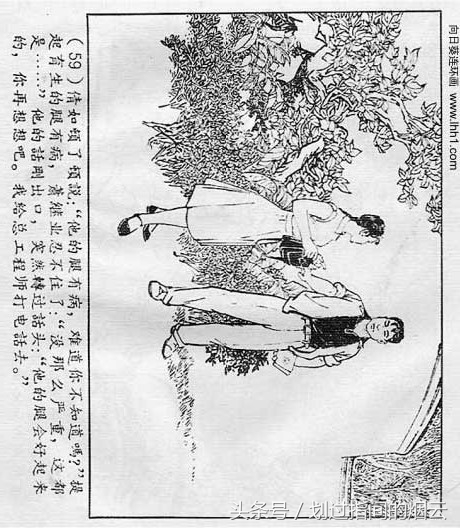 （59）倩如顿了顿说：“他的腿有病，难道你不知道嗎？”提
起育生的腿有病，萧继业忍不住了：“没那么严重，这都
是……”他的話刚出口，突然轉过話头：“他的腿会好起来
的，你再想想吧。我给总工程师打电話去。”
向日葵连环画 www.lhh1.com
头条号／划过指间的烟云